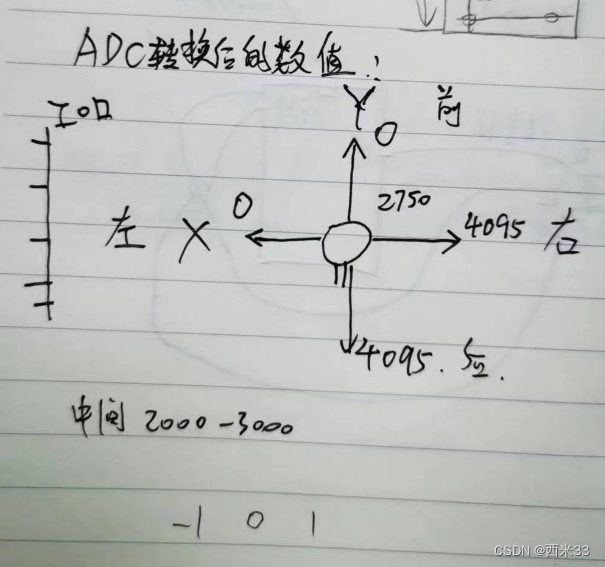 ADC转换后的数值:
Y 前
0
2750
左 X 0
4095 右
4095. 后.
中间 2000-3000
-1 0 1
CSDN @西米33